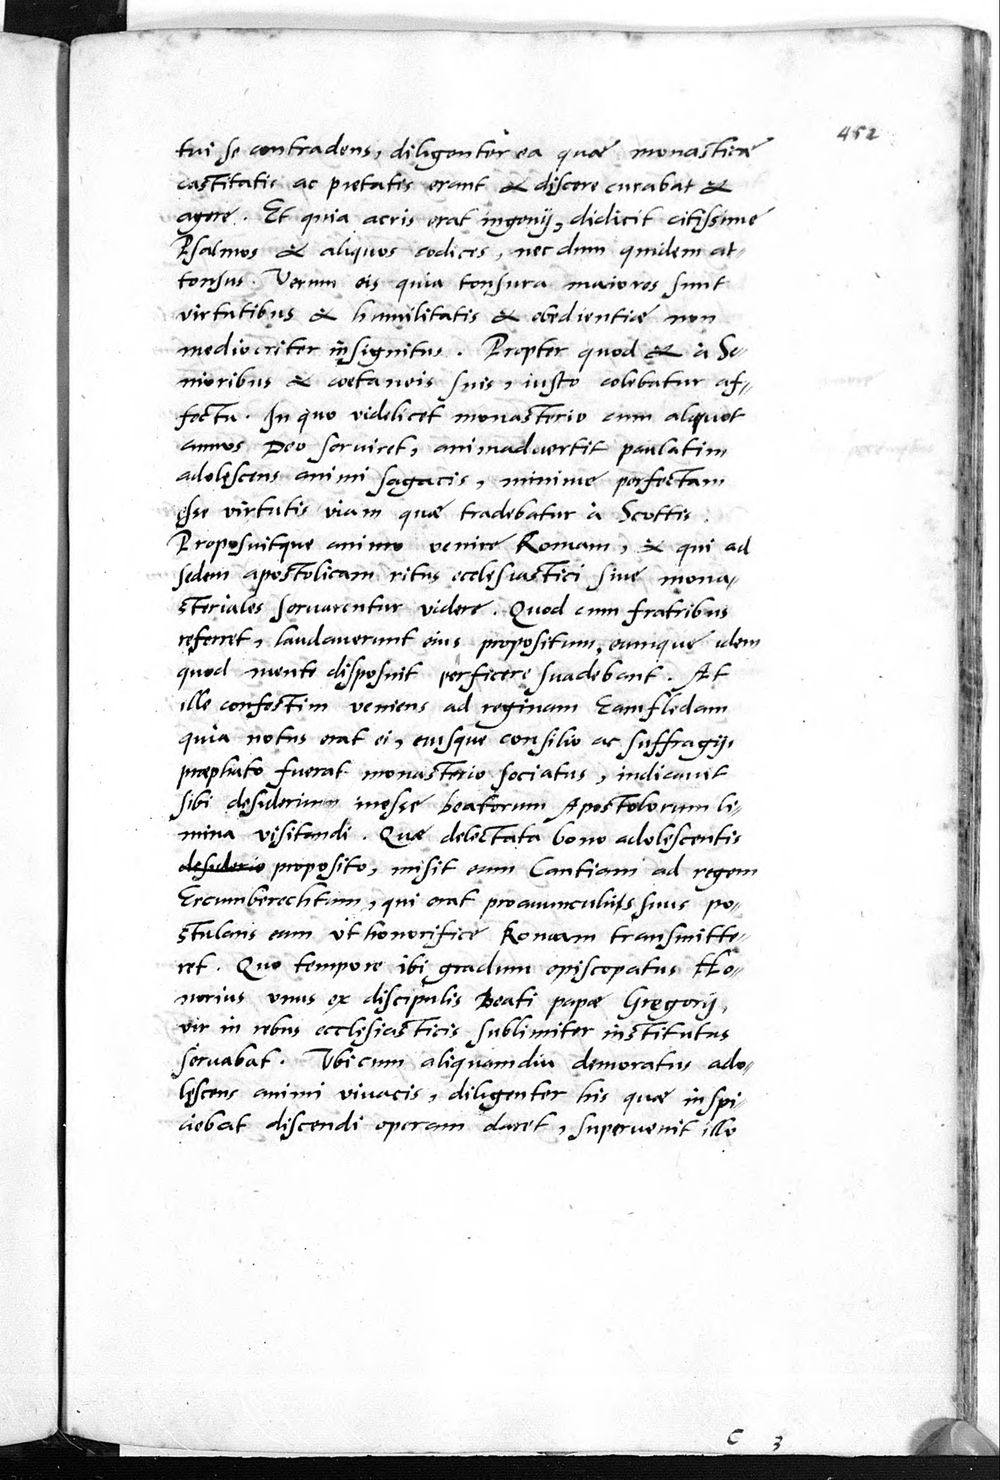 452
tui se contradens, diligenter ea quæ monasticæ
castitatis ac pietatis erant & discere curabat &
agere. Et quia acris erat ingenij, didicit citissime
Psalmos & aliquos codices, necdum quidem at-
tonsus. Verum eis quia tonsura maiores sunt
virtutibus & humilitatis & obedientiæ non
mediocriter insignitus. Propter quod & à Se-
nioribus & coetaneis suis, iusto colebatur af-
fectu. In quo videlicet monasterio cum aliquot
annos Deo serviret, animadvertit paulatim
adolescens animi sagacis, minime perfectam
esse virtutis viam quæ tradebatur à Scottis.
Proposuitque animo venire Romam, & qui ad
sedem apostolicam ritus ecclesiastici sive mona-
steriales servarentur videre. Quod cum fratribus
referret, laudaverunt eius propositum, eumque idem
quod mente disposuit perficere suadebant. At
ille confestim veniens ad reginam Eamfledam
quia notus erat ei, eiusque consilio ac suffragijs
præphato fuerat monasterio sociatus, indicavit
sibi desiderium inesse beatorum Apostolorum li-
mina visitandi. Quæ delectata bono adolescentis
desiderio proposito, misit eum Cantiam ad regem
Ercumberechtum, qui erat proavunculius suus po-
stulans eum ut honorifice Romam transmitte-
ret. Quo tempore ibi gradum episcopatus Ho-
norius unus ex discipulis Beati papæ Gregorij,
vir in rebus ecclesiasticis sublimiter institutus
servabat. Vbi cum aliquamdiu demoratus ado-
lescens animi vivacis, diligenter his quæ inspi-
ciebat discendi operam daret, supervenit illo
C 3